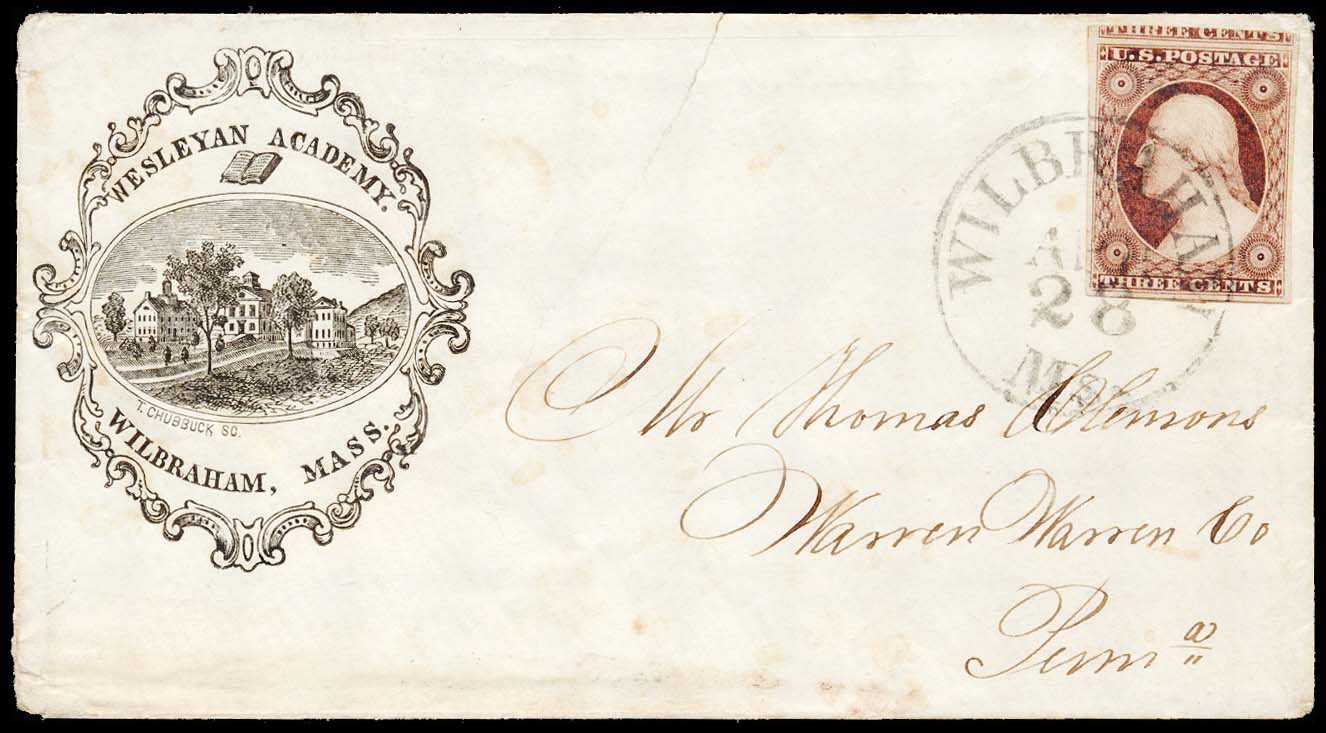 WESLEYAN ACADEMY.
T. CHUBBUCK SC.
WILBRAHAM, MASS.
THREE CENTS
U.S. POSTAGE
THREE CENTS
WILBRAHAM
28
MS
Mr Thomas Clemons
Warren Warren Co
Penna